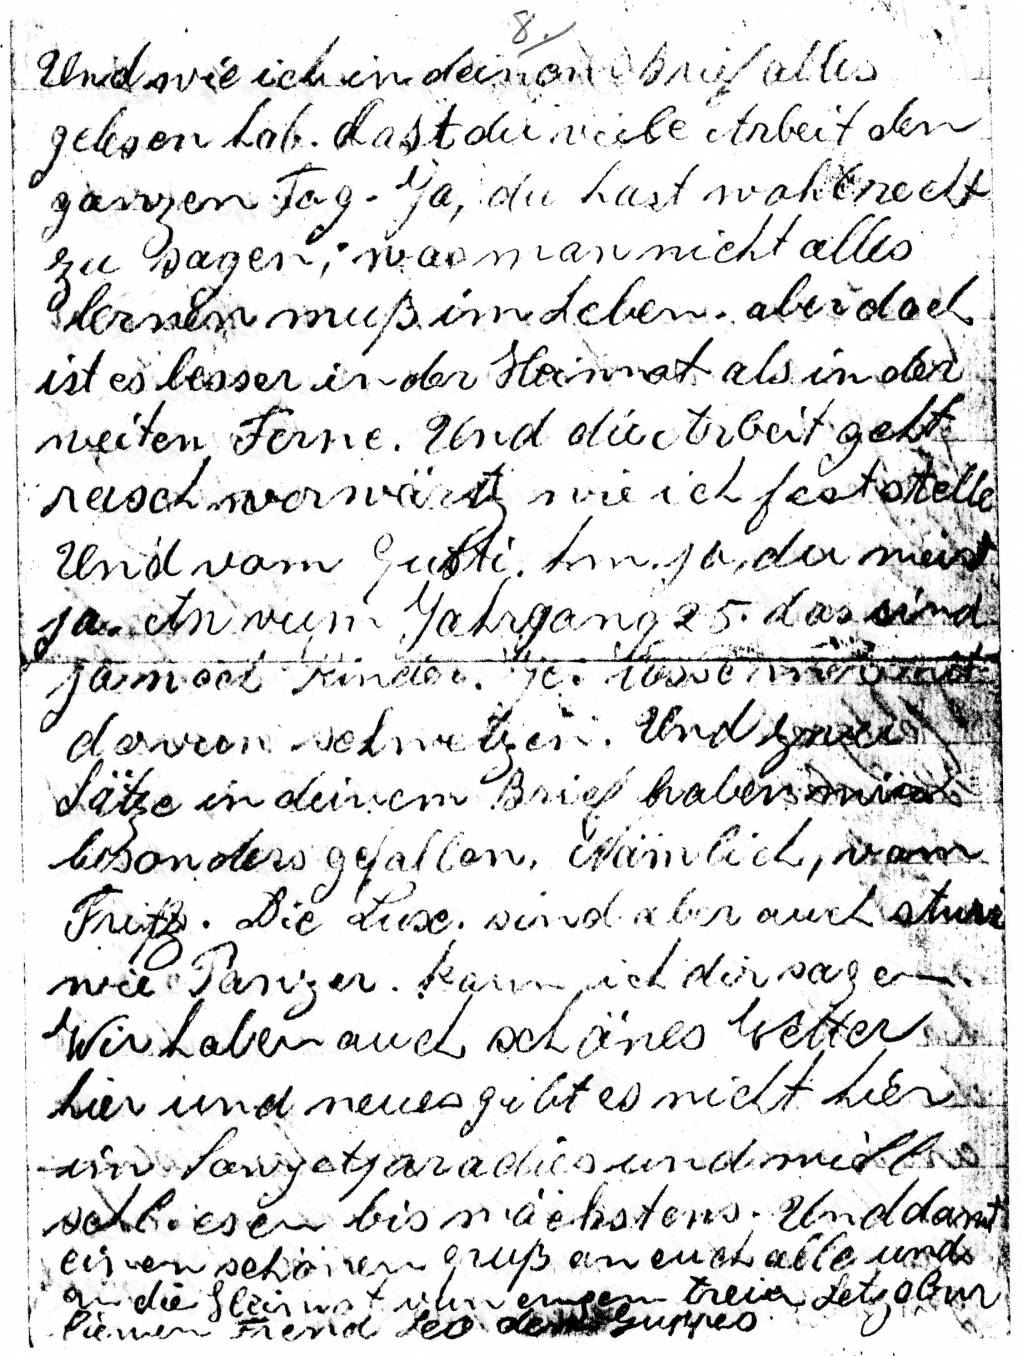 8.
Und wie ich in deinem Brief alles
gelesen hab. hast du viele Arbeit den
ganzen Tag. Ja, du hast wohl recht
zu sagen, was man nicht alles
lernen muß im Leben. aber doch
ist es besser in der Heimat als in der
weiten Ferne. Und die Arbeit geht
rasch vorwärtz wie ich feststelle
Und vom Gusti. hm. ja, du weist
ja. vum Jahrgang 25. das sind
ja noch Kinder. losse
dovun schwetzen. Und zwei
Sätze in deinem Brief haben mich
besonders gefallen. Nämlich, vom
Fritz. Die Luxe. sind aber auch stur
wie Panzer. kann ich dir sagen
Wir haben auch schönes Wetter
hier und neues gibt es nicht hier
im Sowjetparadies und will
schliesen bis nächstens. Und damit
einen schönen gruß an euch alle und
an die Heimat vun engem treien Letzebur
Frend Leo dem Guppeo